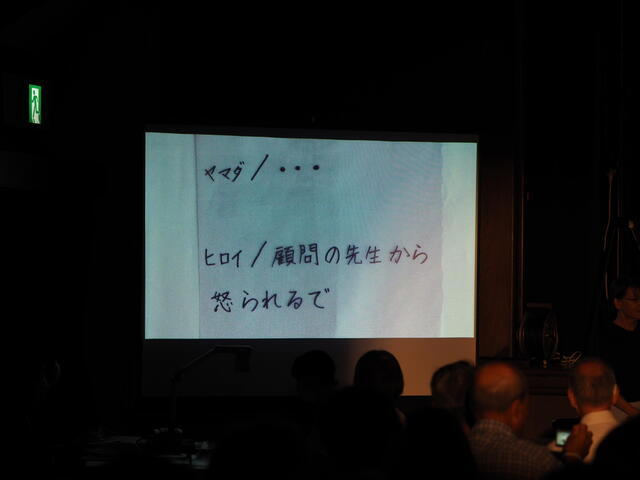 ヤマダ/・・・
ヒロイ/顧問の先生から
怒られるで